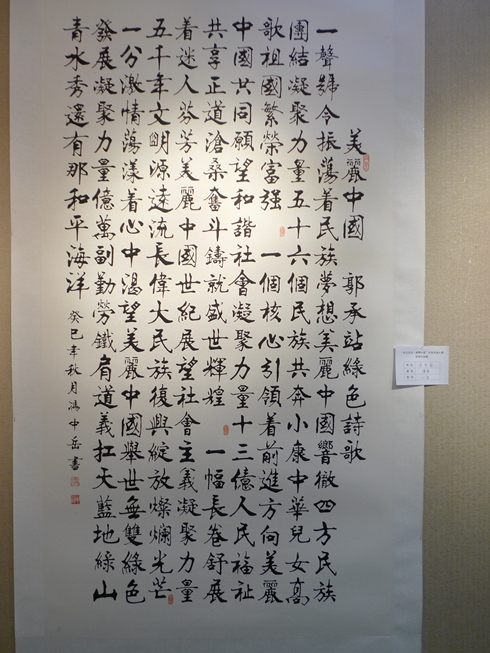 美麗中國 郭承站綠色詩歌
一聲號令振蕩着民族夢想美麗中國響徹四方民族
團結凝聚力量五十六個民族共奔小康中華兒女高
歌祖國繁榮富强 一個核心引領着前進方向美麗
中國共同願望和諧社會凝聚力量十三億人民福祉
共享正道滄桑奮斗鑄就盛世輝煌 一幅長卷舒展
着迷人芬芳美麗中國世紀展望社會主義凝聚力量
五千年文明源遠流長偉大民族復興綻放燦爛光芒
一分激情蕩漾着心中渴望美麗中國舉世無雙綠色
發展凝聚力量億萬副勤勞鐵肩道義扛天藍地綠山
青水秀還有那和平海洋
癸巳年秋月馮中岳書